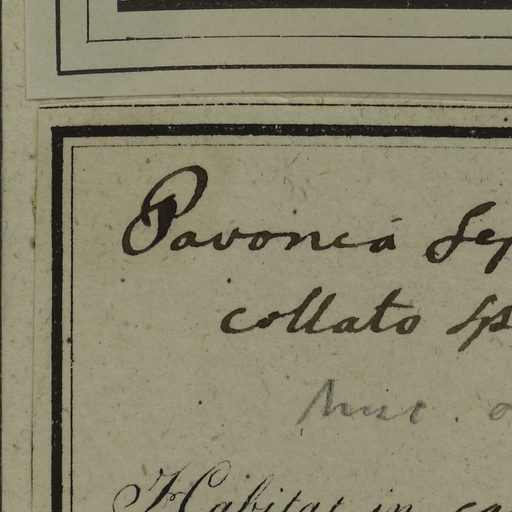 Pavonia Sep
collato sp
Habitat in ca